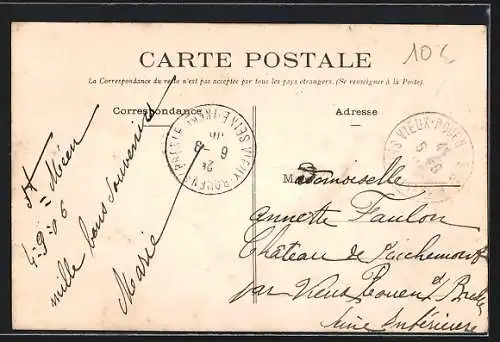 CARTE POSTALE
10 €
La Correspondance du recto n'est pas acceptée par tous les pays étrangers. (Se renseigner à la Poste)
Correspondance
Adresse
St Méen
4=9=06
mille bons souvenirs
Marie
VIEUX-ROUEN
SEINE-INFRE
VIEUX-ROUEN
Mademoiselle
Annette Faulon
Château de Richemont
par Vieux Rouen s/ Bresle
Seine Inférieure